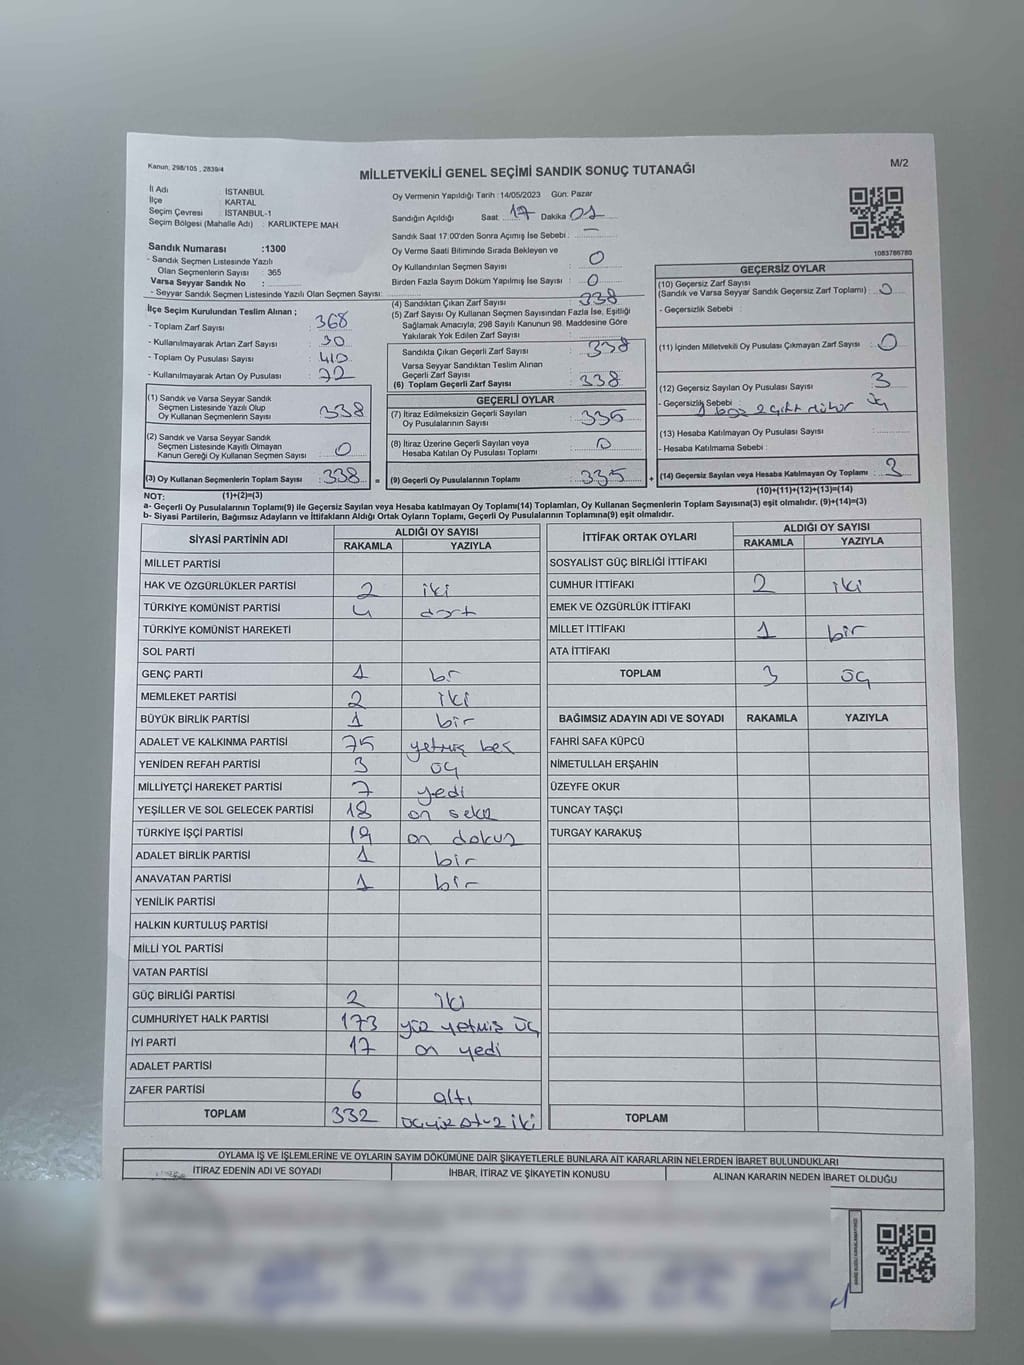 Kanun, 298/105 , 2839/4
MİLLETVEKİLİ GENEL SEÇİMİ SANDIK SONUÇ TUTANAĞI
M/2
İl Adı : İSTANBUL
İlçe : KARTAL
Seçim Çevresi : İSTANBUL-1
Seçim Bölgesi (Mahalle Adı) : KARLIKTEPE MAH
Sandık Numarası :1300
- Sandık Seçmen Listesinde Yazılı
Olan Seçmenlerin Sayısı : 365
Varsa Seyyar Sandık No :
- Seyyar Sandık Seçmen Listesinde Yazılı Olan Seçmen Sayısı:
Oy Vermenin Yapıldığı Tarih : 14/05/2023 Gün: Pazar
Sandığın Açıldığı Saat: 17 Dakika 01
Sandık Saat 17:00'den Sonra Açımış İse Sebebi : -
Oy Verme Saati Bitiminde Sırada Bekleyen ve
Oy Kullandırılan Seçmen Sayısı : 0
Birden Fazla Sayım Döküm Yapılmış İse Sayısı : 0
1083786780
İlçe Seçim Kurulundan Teslim Alınan ;
- Toplam Zarf Sayısı : 368
- Kullanılmayarak Artan Zarf Sayısı : 30
- Toplam Oy Pusulası Sayısı : 410
- Kullanılmayarak Artan Oy Pusulası : 72
(1) Sandık ve Varsa Seyyar Sandık
Seçmen Listesinde Yazılı Olup
Oy Kullanan Seçmenlerin Sayısı : 338
(2) Sandık ve Varsa Seyyar Sandık
Seçmen Listesinde Kayıtlı Olmayan
Kanun Gereği Oy Kullanan Seçmen Sayısı : 0
(3) Oy Kullanan Seçmenlerin Toplam Sayısı : 338 =
(4) Sandıktan Çıkan Zarf Sayısı : 338
(5) Zarf Sayısı Oy Kullanan Seçmen Sayısından Fazla İse, Eşitliği
Sağlamak Amacıyla, 298 Sayılı Kanunun 98. Maddesine Göre
Yakılarak Yok Edilen Zarf Sayısı :
Sandıkta Çıkan Geçerli Zarf Sayısı : 338
Varsa Seyyar Sandıktan Teslim Alınan
Geçerli Zarf Sayısı :
(6) Toplam Geçerli Zarf Sayısı : 338
GEÇERLİ OYLAR
(7) İtiraz Edilmeksizin Geçerli Sayılan
Oy Pusulalarının Sayısı : 335
(8) İtiraz Üzerine Geçerli Sayılan veya
Hesaba Katılan Oy Pusulası Toplamı : 0
(9) Geçerli Oy Pusulalarının Toplamı : 335 +
GEÇERSİZ OYLAR
(10) Geçersiz Zarf Sayısı
(Sandık ve Varsa Seyyar Sandık Geçersiz Zarf Toplamı) : 0
- Geçersizlik Sebebi :
(11) İçinden Milletvekili Oy Pusulası Çıkmayan Zarf Sayısı : 0
(12) Geçersiz Sayılan Oy Pusulası Sayısı : 3
- Geçersizlik Sebebi : 1 boş 2 çift mühür üç
(13) Hesaba Katılmayan Oy Pusulası Sayısı :
- Hesaba Katılmama Sebebi :
(14) Geçersiz Sayılan veya Hesaba Katılmayan Oy Toplamı : 3
NOT: (1)+(2)=(3) (10)+(11)+(12)+(13)=(14)
a- Geçerli Oy Pusulalarının Toplamı(9) ile Geçersiz Sayılan veya Hesaba katılmayan Oy Toplamı(14) Toplamları, Oy Kullanan Seçmenlerin Toplam Sayısına(3) eşit olmalıdır. (9)+(14)=(3)
b- Siyasi Partilerin, Bağımsız Adayların ve İttifakların Aldığı Ortak Oyların Toplamı, Geçerli Oy Pusulalarının Toplamına(9) eşit olmalıdır.
SİYASİ PARTİNİN ADI ALDIĞI OY SAYISI
RAKAMLA YAZIYLA
MİLLET PARTİSİ
HAK VE ÖZGÜRLÜKLER PARTİSİ 2 iki
TÜRKİYE KOMÜNİST PARTİSİ 4 dört
TÜRKİYE KOMÜNİST HAREKETİ
SOL PARTİ
GENÇ PARTİ 1 bir
MEMLEKET PARTİSİ 2 iki
BÜYÜK BİRLİK PARTİSİ 1 bir
ADALET VE KALKINMA PARTİSİ 75 yetmiş beş
YENİDEN REFAH PARTİSİ 3 üç
MİLLİYETÇİ HAREKET PARTİSİ 7 yedi
YEŞİLLER VE SOL GELECEK PARTİSİ 18 on sekiz
TÜRKİYE İŞÇİ PARTİSİ 19 on dokuz
ADALET BİRLİK PARTİSİ 1 bir
ANAVATAN PARTİSİ 1 bir
YENİLİK PARTİSİ
HALKIN KURTULUŞ PARTİSİ
MİLLİ YOL PARTİSİ
VATAN PARTİSİ
GÜÇ BİRLİĞİ PARTİSİ 2 iki
CUMHURİYET HALK PARTİSİ 173 yüz yetmiş üç
İYİ PARTİ 17 on yedi
ADALET PARTİSİ
ZAFER PARTİSİ 6 altı
TOPLAM 332 üçyüz otuz iki
İTTİFAK ORTAK OYLARI ALDIĞI OY SAYISI
RAKAMLA YAZIYLA
SOSYALİST GÜÇ BİRLİĞİ İTTİFAKI
CUMHUR İTTİFAKI 2 iki
EMEK VE ÖZGÜRLÜK İTTİFAKI
MİLLET İTTİFAKI 1 bir
ATA İTTİFAKI
TOPLAM 3 üç
BAĞIMSIZ ADAYIN ADI VE SOYADI RAKAMLA YAZIYLA
FAHRİ SAFA KÜPCÜ
NİMETULLAH ERŞAHİN
ÜZEYFE OKUR
TUNCAY TAŞÇI
TURGAY KARAKUŞ
TOPLAM
OYLAMA İŞ VE İŞLEMLERİNE VE OYLARIN SAYIM DÖKÜMÜNE DAİR ŞİKAYETLERLE BUNLARA AİT KARARLARIN NELERDEN İBARET BULUNDUKLARI
İTİRAZ EDENİN ADI VE SOYADI İHBAR, İTİRAZ VE ŞİKAYETİN KONUSU ALINAN KARARIN NEDEN İBARET OLDUĞU